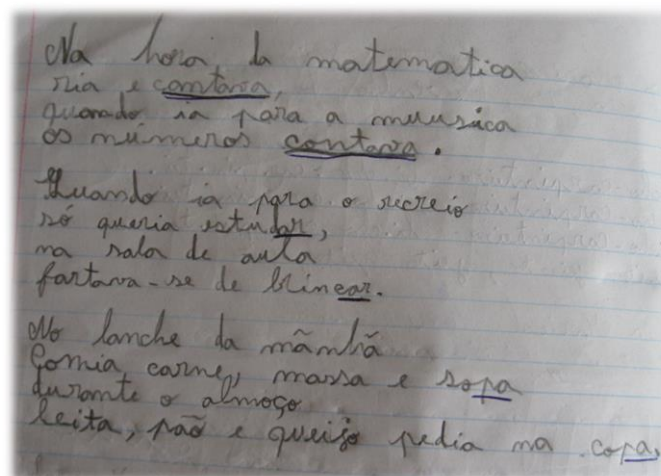 Na hora da matematica
ria e cantava,
quando ia para a muusica
os números contava.
Quando ia para o recreio
só queria estudar,
na sala de aula
fartava-se de brincar.
No lanche da mãnhã
Comia carne, massa e sopa
durante o almoço
leita, pão e queijo pedia na copa,